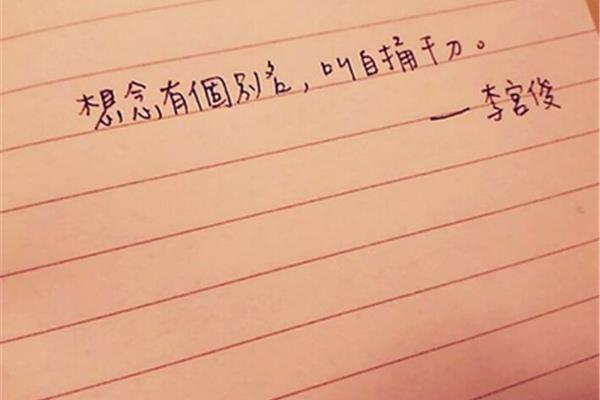 想念有個別名，叫自捅千刀。
— 李宮俊